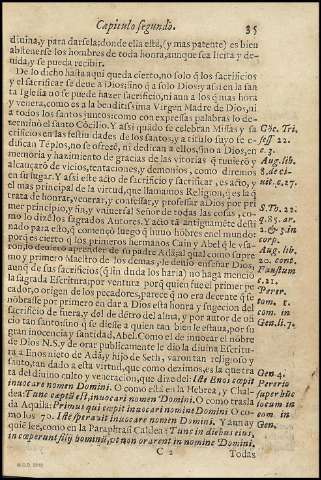 Capitulo segundo. 35
diuina, y para darsela: donde ella està, (y mas patente) es bien
abstenerse los hombres de toda honra, aunque sea licita y de-
uida, y se pueda recibir.
De lo dicho hasta aqui queda cierto, no solo q̃ los sacrificios
y el sacrificar se deue à Dios; sino q̃ a solo Dios, y assi en la san
ta Iglesia no se puede hazer sacrificio, ni aun a los q̃ mas honra
y venera, como es a la benditissima Virgen Madre de Dios, ni
a todos los santos juntos: como con expressas palabras lo de-
terminò el santo Cõcilio. Y assi quãdo se celebran Missas y sa
crificios en las festiuidades de los santos, y a titulo suyo se de-
difican Tẽplos, no se ofrecẽ, ni dedican a ellos, sino a Dios, en
memoria y hazimiento de gracias de las vitorias q̃ tuuierõ y
alcançarõ de vicios, tentaciones, y demonios, como diremos
en su lugar. Y assi este acto de sacrificio y sacrificar, es acto, y
el mas principal de la virtud, que llamamos Religion, q̃ es la q̃
trata de honrar, venerar, y confessar, y professar a Dios por pri
mer principio, y fin, y vniuersal Señor de todas las cosas, co-
mo lo dizẽ los sagrados Autores. Y acto tã antiguamẽte desti
nado para esto, q̃ començò luego q̃ huuo hõbres en el mundo:
porq̃ es cierto q̃ los primeros hermanos Cain y Abel q̃ le vsa-
ron, lo deuierõ aprender de su padre Adã, al qual como supre
mo y primero Maestro de los demas, le deuio enseñar Dios,
aunq̃ de sus sacrificios (q̃ sin duda los haria) no haga mencio
la sagrada Escritura, por ventura porq̃ quien fue el primer pe
cador, o origen de los pecadores, parece q̃ no era decente q̃ se
nõbrasse por primero en dar a Dios esta honra y sugecion del
sacrificio de fuera, y del de dẽtro del alma, y por autor de ofi
cio tan santo, sino q̃ se diesse a quien tan bien le estaua, por su
gran inocencia y santidad, Abel. Como el de inuocar el nõbre
de Dios N.S. y de orar publicamente le dio la diuina Escritu-
ra a Enos nieto de Adã, y hijo de Seth, varon tan religioso y
santo, tan dado a esta virtud, que como dezimos, es la que tra
ta del diuino culto y veneracion, que dize del: Iste Enos cœpit
inuocare nomen Domini. O como està en la Hebrea, y Chal-
dea: Tunc cœptũ est, inuocari nomen Domini. O como trasla
da Aquila: Primus qui cœpit inuocari nomine Domini. O co-
mo los 70. Iste sperauit inuocare nomen Domini. Y aun ay
quiẽ lee, como en la Paraphrasi Caldea: Tunc in diebus eius,
inceperunt filij hominũ, vt non orarent in nomine Domini.
C 2 Todas
Cõc. Tri.
sess. 22.
c. 3.
Aug. lib.
8. de ci-
uit. c. 27.
S. Th. 22.
q. 85. ar.
2. & 3. in
corp.
Aug. lib.
20. cont.
Faustum
c. 21.
Perer.
tom. 1.
com. in
Gen. li. 7.
Gen. 4.
Pererio
super hũc
locum in
tom. 1.
com. in
Gen.